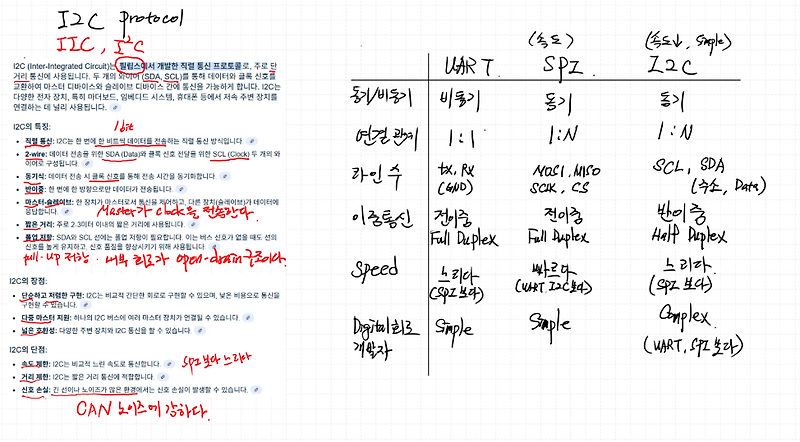 I2C protocol
IIC, I²C
I2C (Inter-Integrated Circuit)는 필립스에서 개발한 직렬 통신 프로토콜로, 주로 단
거리 통신에 사용됩니다. 두 개의 와이어 (SDA, SCL)를 통해 데이터와 클록 신호를
교환하여 마스터 디바이스와 슬레이브 디바이스 간에 통신을 가능하게 합니다. I2C는
다양한 전자 장치, 특히 마더보드, 임베디드 시스템, 휴대폰 등에서 저속 주변 장치를
연결하는 데 널리 사용됩니다.
I2C의 특징:
1bit
직렬 통신: I2C는 한 번에 한 비트씩 데이터를 전송하는 직렬 통신 방식입니다
2-wire: 데이터 전송을 위한 SDA (Data)와 클록 신호 전달을 위한 SCL (Clock) 두 개의 와
이어로 구성됩니다.
동기식: 데이터 전송 시 클록 신호를 통해 전송 시간을 동기화합니다.
반이중: 한 번에 한 방향으로만 데이터가 전송됩니다.
마스터-슬레이브: 한 장치가 마스터로서 통신을 제어하고, 다른 장치(슬레이브)가 데이터에
응답합니다.
Master가 clock을 전송한다.
짧은 거리: 주로 2-3미터 이내의 짧은 거리에 사용됩니다.
풀업 저항: SDA와 SCL 선에는 풀업 저항이 필요합니다. 이는 버스 신호가 없을 때도 선의
신호를 높게 유지하고, 신호 품질을 향상시키기 위해 사용됩니다.
pull-up 저항. 내부 회로가 open-drain 구조이다.
I2C의 장점:
단순하고 저렴한 구현: I2C는 비교적 간단한 회로로 구현할 수 있으며, 낮은 비용으로 통신을
구현할 수 있습니다.
다중 마스터 지원: 하나의 I2C 버스에 여러 마스터 장치가 연결될 수 있습니다.
넓은 호환성: 다양한 주변 장치와 I2C 통신을 할 수 있습니다.
I2C의 단점:
속도 제한: I2C는 비교적 느린 속도로 통신합니다.
SPI보다 느리다
거리 제한: I2C는 짧은 거리 통신에 적합합니다.
신호 손실: 긴 선이나 노이즈가 많은 환경에서는 신호 손실이 발생할 수 있습니다.
CAN 노이즈에 강하다.
(속도) (속도↓, Simple)
UART. SPI. I2C
동기/비동기 비동기 동기 동기
연결 관계 1:1 1:N 1:N
라인 수 tx, RX MOSI, MISO SCL, SDA
(GND) SCLK, CS (주소, Data)
이중통신 전이중 전이중 반이중
Full Duplex Full Duplex Half Duplex
Speed 느리다 빠르다 느리다
(SPI보다) (UART, I2C보다) (SPI보다)
Digital회로 Simple Simple Complex
개발자 (UART, SPI보다)